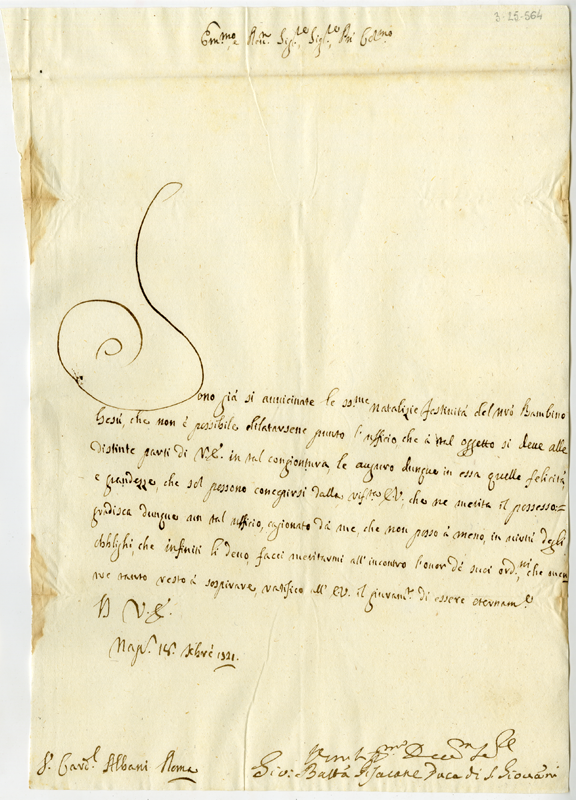 3-25-564
Em.mo e Rev. Sig.re Sig.re Pne Col.mo
Sono già si auuicinate le ss.me Natalizie festiuità del nrõ Bambino
Gesù, che non è possibile dilatarsene punto l'ufficio che à tal oggetto si deue alle
distinte parti di V.E. in tal congiontura, le auguro dunque in essa quelle felicità,
e grandezze, che sol possono conseguirsi dalla E.V. che ne merita il possesso:
gradisca dunque un tal ufficio, cagionato dà me, che non posso à meno, in uirtù degli
obblighi, che infiniti li deuo, facci meritarmi all'incontro l'onor dè suoi ord.ni che men
tre tanto resto à sospirare, ratifico all'E.V. il giuram.to di essere eternam.e
D V.E.
Nap. 18. Xbre 1721.
S.r Card.l Albani Roma
Gio: Batta Duca di S. Giouanni